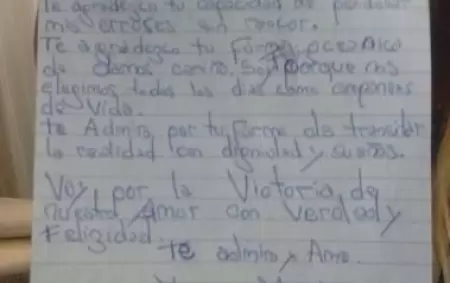 Te agradezco tu capacidad de perdonar
mis errores sin rencor.
Te agradezco tu forma
de darnos porque nos
elegimos todos los dias como
de Vida.
te Admiro por tu forma de transitar
la realidad con dignidad y sueños.
Voy por la Victoria de
nuestro Amor con Verdad y
Felizidad.
te admiro y Amo